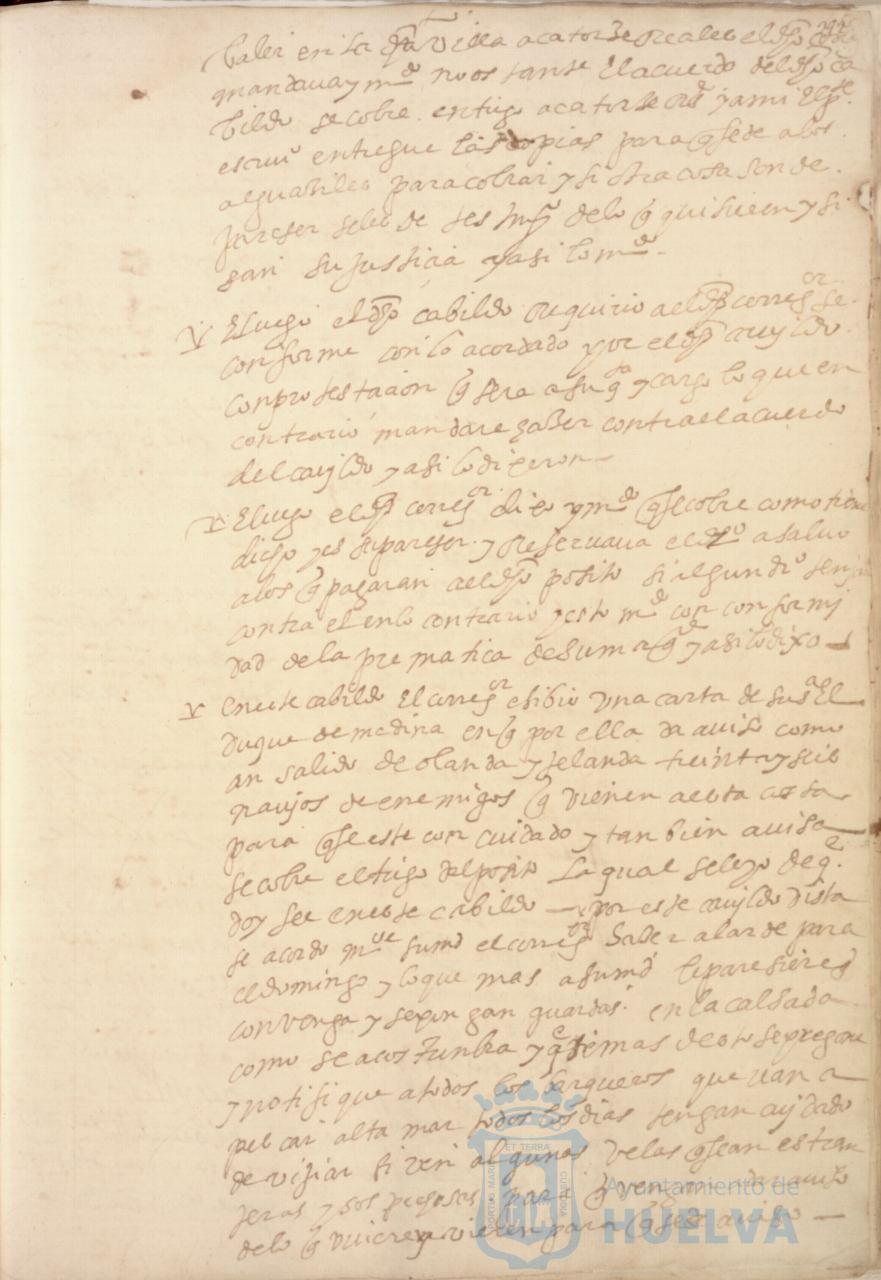 valer en la dha villa a catorse reales el dho
mandava y mdo no os tante El acuerdo del dho ca
bildo se cobre entrigo a catorse Rs y a mi El pte
escrivo entregue las copias para q se de a los
alguasiles para cobrar y si otra cosa son de
pareser seles de testimo delo q quisieren y si
gan su justicia y asi lo mdo
E luego el dho cabildo Requirio a el dho corregor se
conforme con lo acordado por el dho cavildo
con protestacion q sera a su qta y cargo lo que en
contrario mandare haser contra el acuerdo
del cavildo y asi lo dixeron
E luego el dho corregor dixo y mdo q se cobre como tiene
dicho y es su pareser y Reservava el dro a salvo
a los q pagaran al dho posito si algun dro tenian
contra el en lo contrario y esto mdo con conformi
dad de la prematica de su magd y asi lo dixo
en este cabildo El corregor esibio una carta de su exa El
duque de medina en q por ella da aviso como
an salido de olanda y selanda treinta y seis
navios de enemigos q vienen a esta costa
para q se este con cuidado y tambien avisa
se cobre el trigo del posito La qual se leyo de q
doy fee en este cabildo por este cavildo vista
se acordo mde su md el corregor haser alarde para
el domingo y lo que mas a su md le paresiere q
convenga y se pongan guardas en la calsada
como se acostunbra y q demas desto se pregone
y notifique a todos los barqueros que van a
pescar alta mar todos los dias tengan cuidado
de vijiar si ven algunas velas q sean estran
jeras y sospechosas para q vengan a dar aviso
de lo q vieren para q se de aviso
ET TERRÆ
PORTUS MARIS
CUSTODIA
Ayuntamiento de
HUELVA